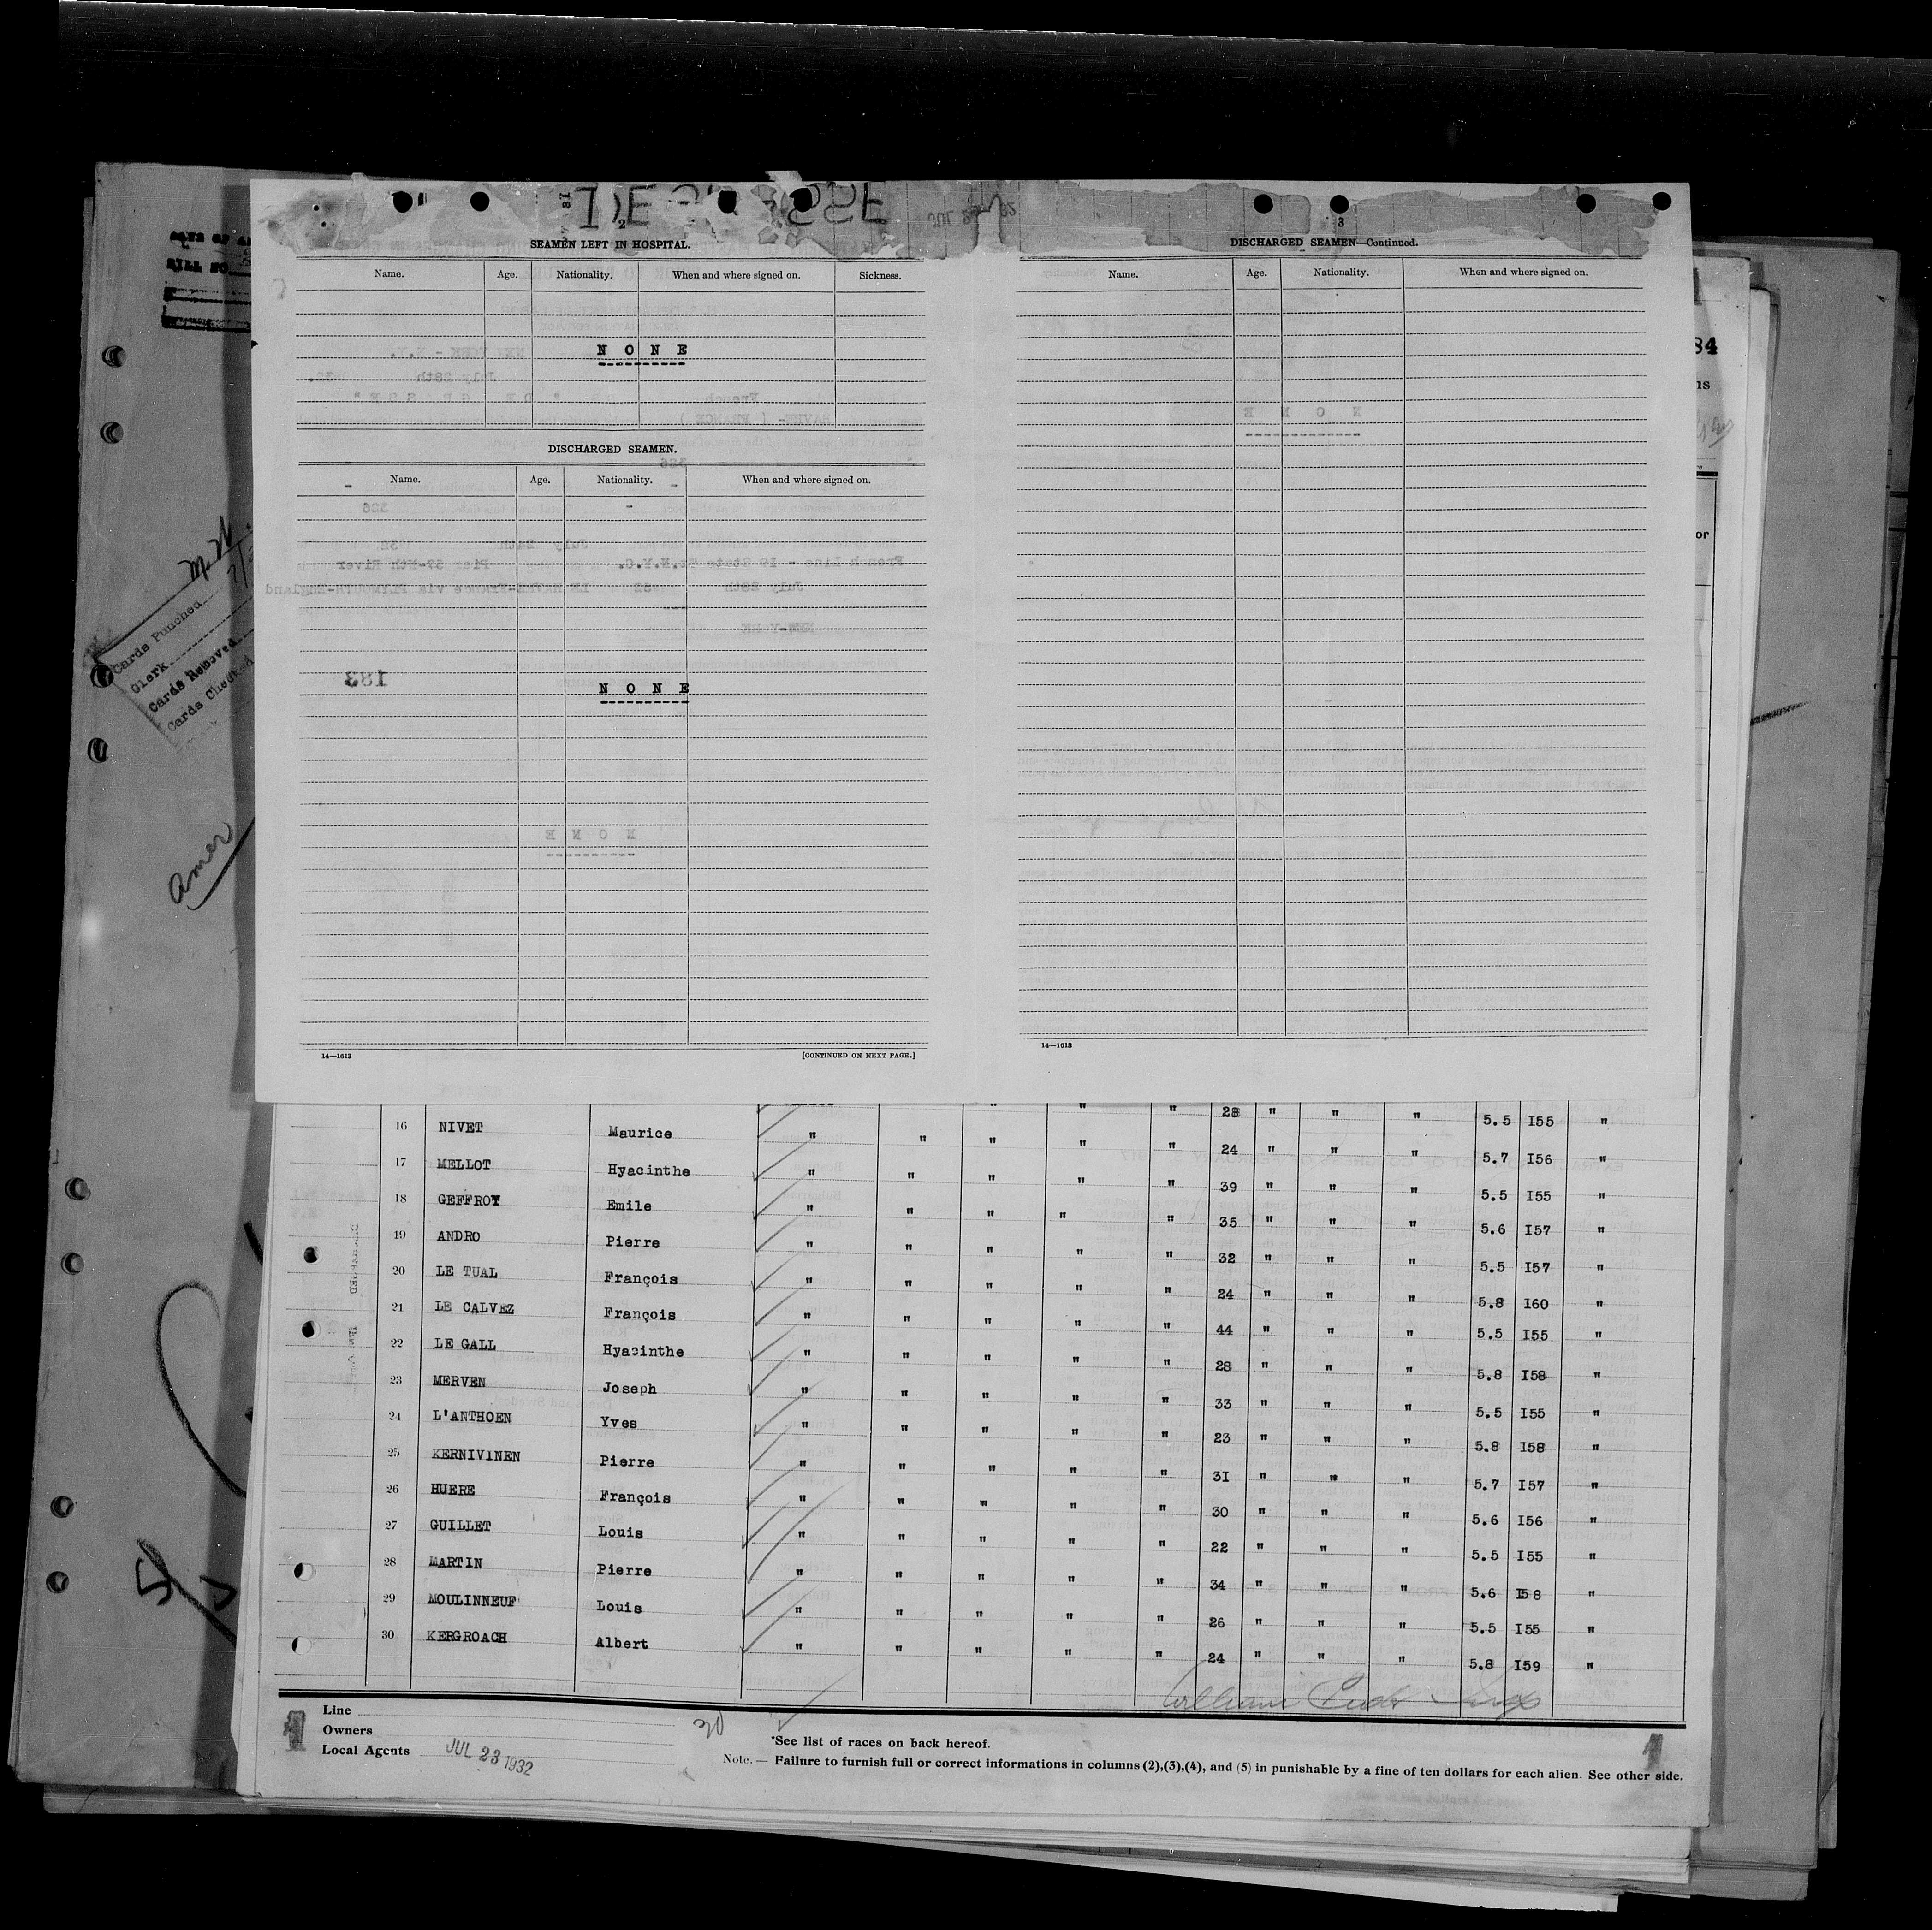 2
SEAMEN LEFT IN HOSPITAL.
Name. Age. Nationality. When and where signed on. Sickness.
N O N E
DISCHARGED SEAMEN.
Name. Age. Nationality. When and where signed on.
N O N E
14—1613 [CONTINUED ON NEXT PAGE.]
3
DISCHARGED SEAMEN—Continued.
Name. Age. Nationality. When and where signed on.
14—1613
84
ns
or
Cards Punched
Clerk
Cards Removed
Cards Checked
Amer
28 " " " 5.5 I55 "
16 NIVET Maurice " " " " " 24 " " " 5.7 I56 "
17 MELLOT Hyacinthe " " " " " 39 " " " 5.5 I55 "
18 GEFFROY Emile " " " " " 35 " " " 5.6 I57 "
19 ANDRO Pierre " " " " " 32 " " " 5.5 I57 "
20 LE TUAL François " " " " " 24 " " " 5.8 I60 "
21 LE CALVEZ François " " " " " 44 " " " 5.5 I55 "
22 LE GALL Hyacinthe " " " " " 28 " " " 5.8 I58 "
23 MERVEN Joseph " " " " " 33 " " " 5.5 I55 "
24 L'ANTHOEN Yves " " " " " 23 " " " 5.8 I58 "
25 KERNIVINEN Pierre " " " " " 31 " " " 5.7 I57 "
26 HUERE François " " " " " 30 " " " 5.6 I56 "
27 GUILLET Louis " " " " " 22 " " " 5.5 I55 "
28 MARTIN Pierre " " " " " 34 " " " 5.6 I58 "
29 MOULINNEUF Louis " " " " " 26 " " " 5.5 I55 "
30 KERGROACH Albert " " " " " 24 " " " 5.8 I59 "
William
Line
Owners
Local Agents JUL 23 1932
1
*See list of races on back hereof.
Note.— Failure to furnish full or correct informations in columns (2),(3),(4), and (5) in punishable by a fine of ten dollars for each alien. See other side.
1